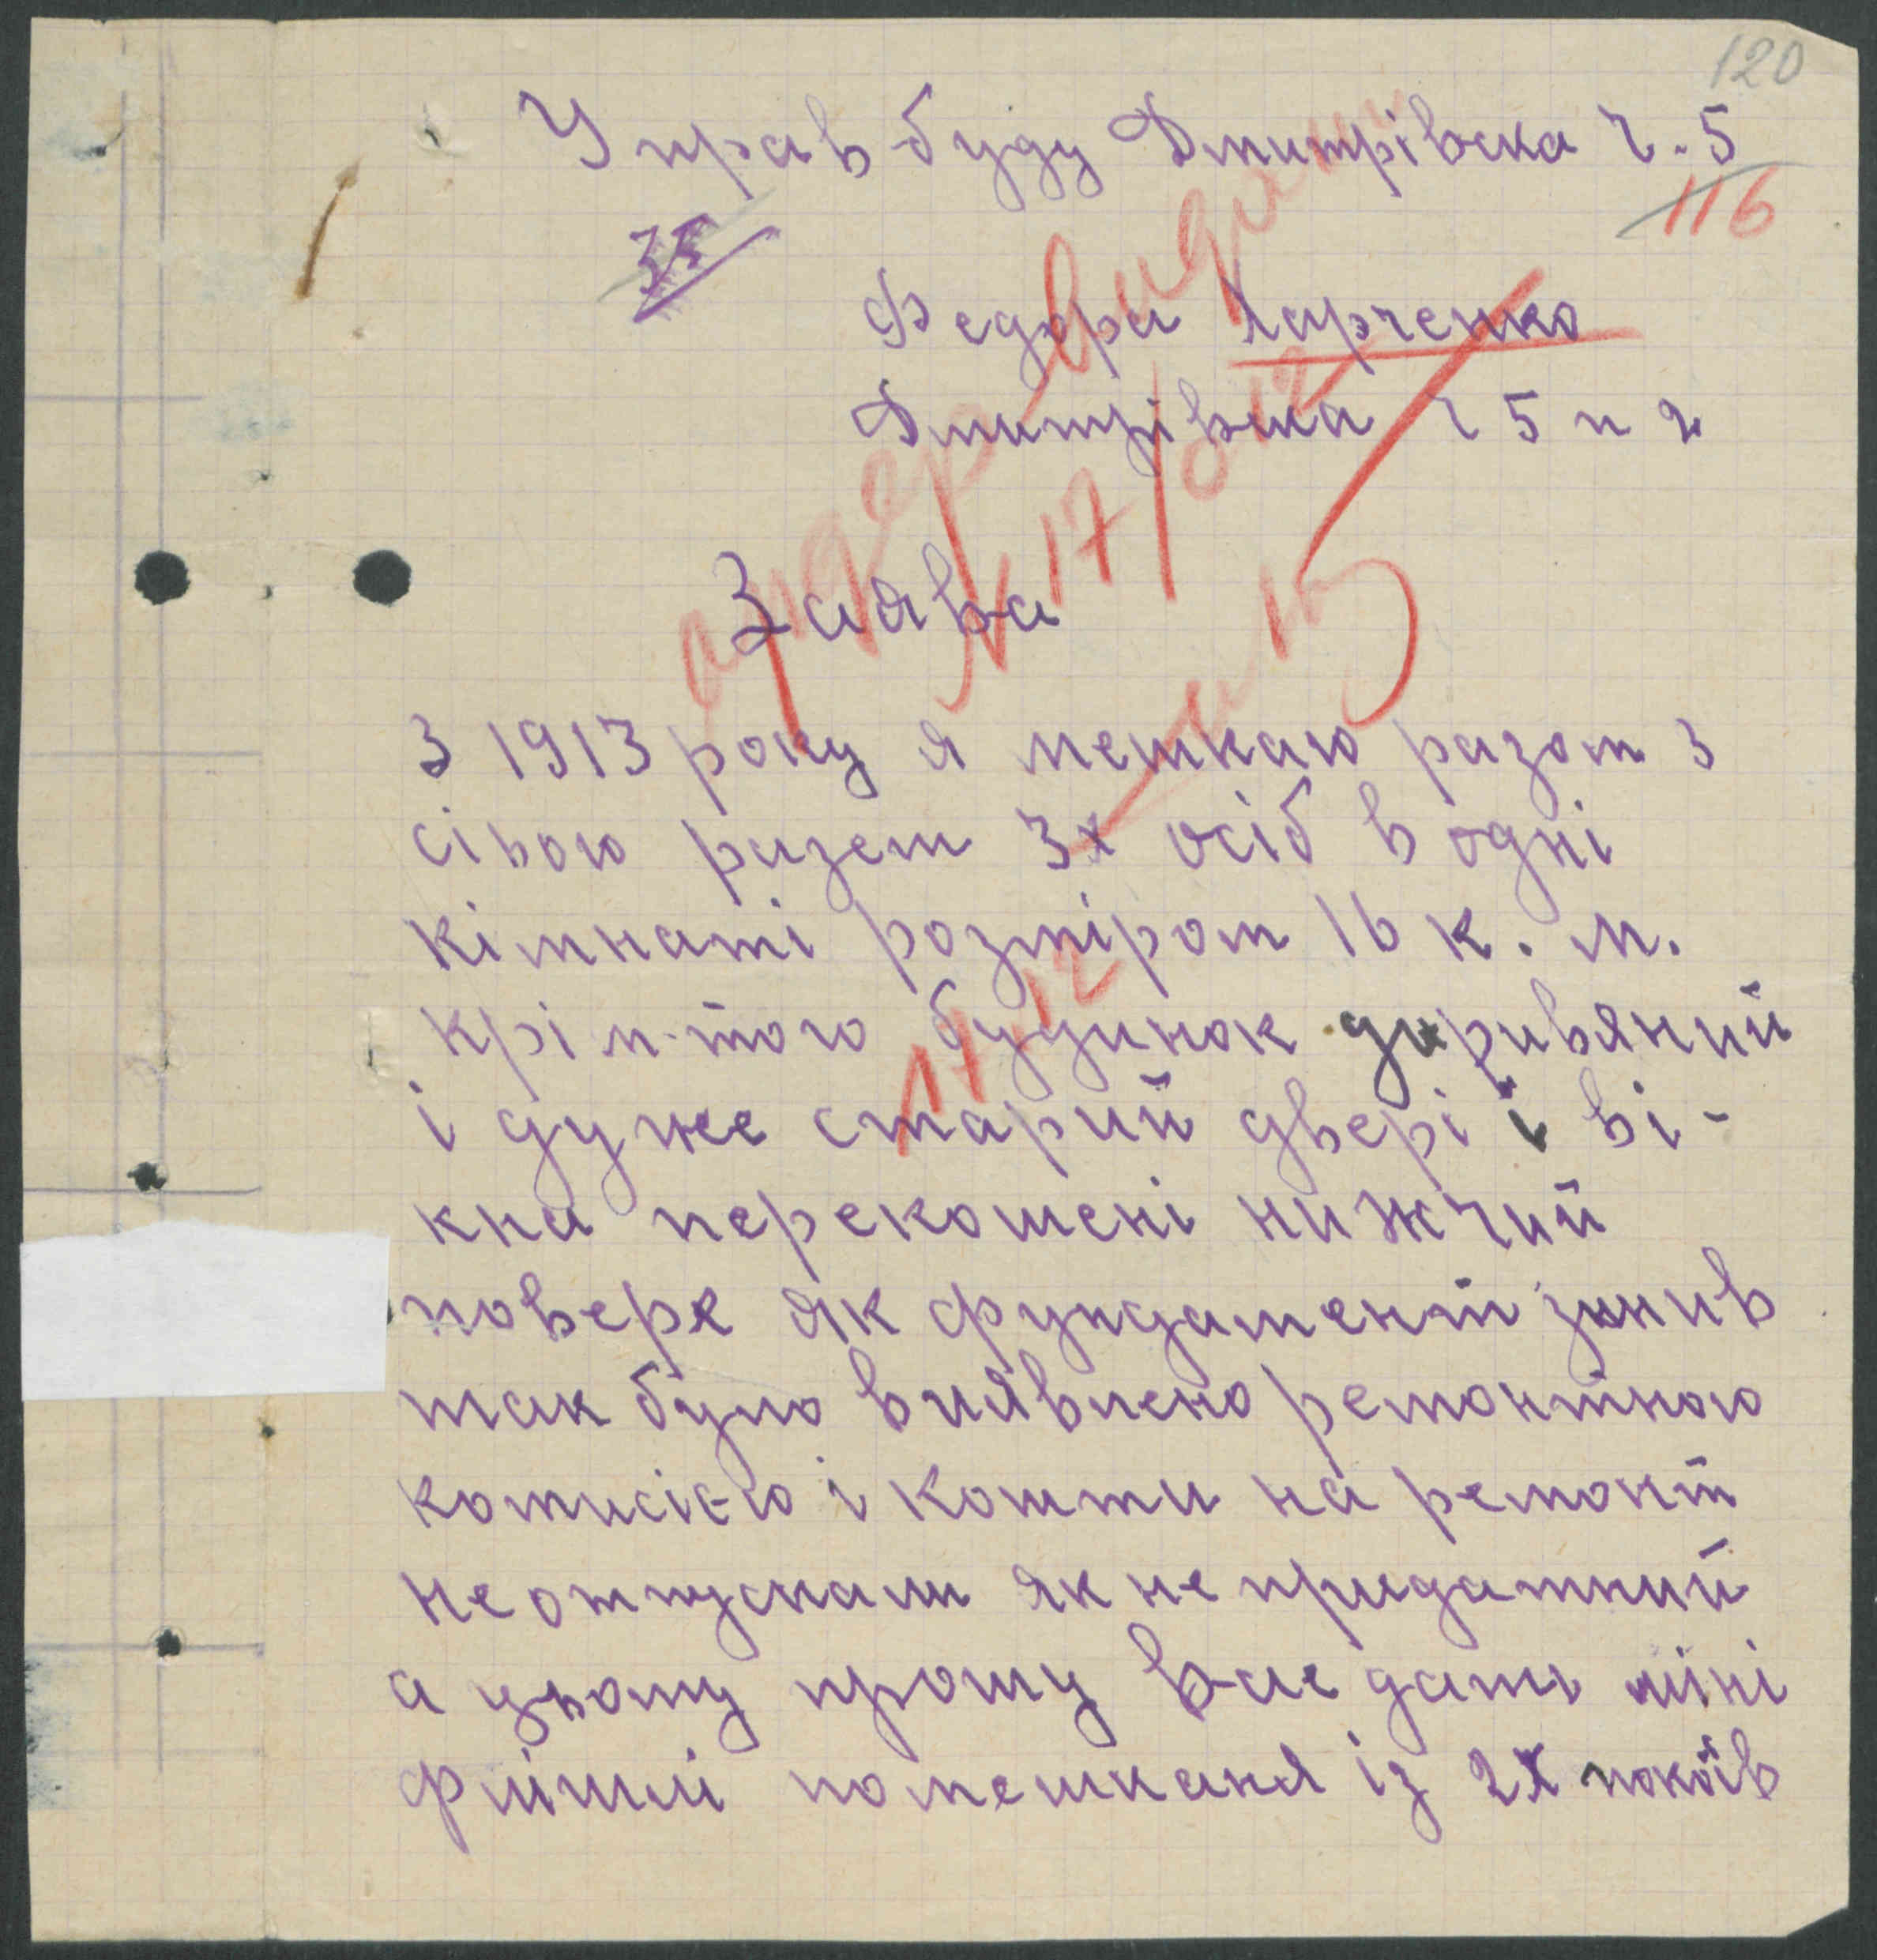 120
Управ буду Дмитрівска Ч. 5
116
35
Федора Харченко
Дмитрівска ч 5 п 2
ордер видати
N 17/
Заява
З 1913 року я мешкаю разом з
сівою разем 3х осіб в одні
кімнаті розміром 16 к. м.
крім того будинок диривяний
і дуже старий двері і ві-
кна перекошені нижчий
поверх як фундамент знив
так було виявлено ремонтною
комисією і кошти на ремонт
не отпускали як не придатний
а цьому прошу вас дати міні
флішлі помешканя із 2х покоїв
17 12